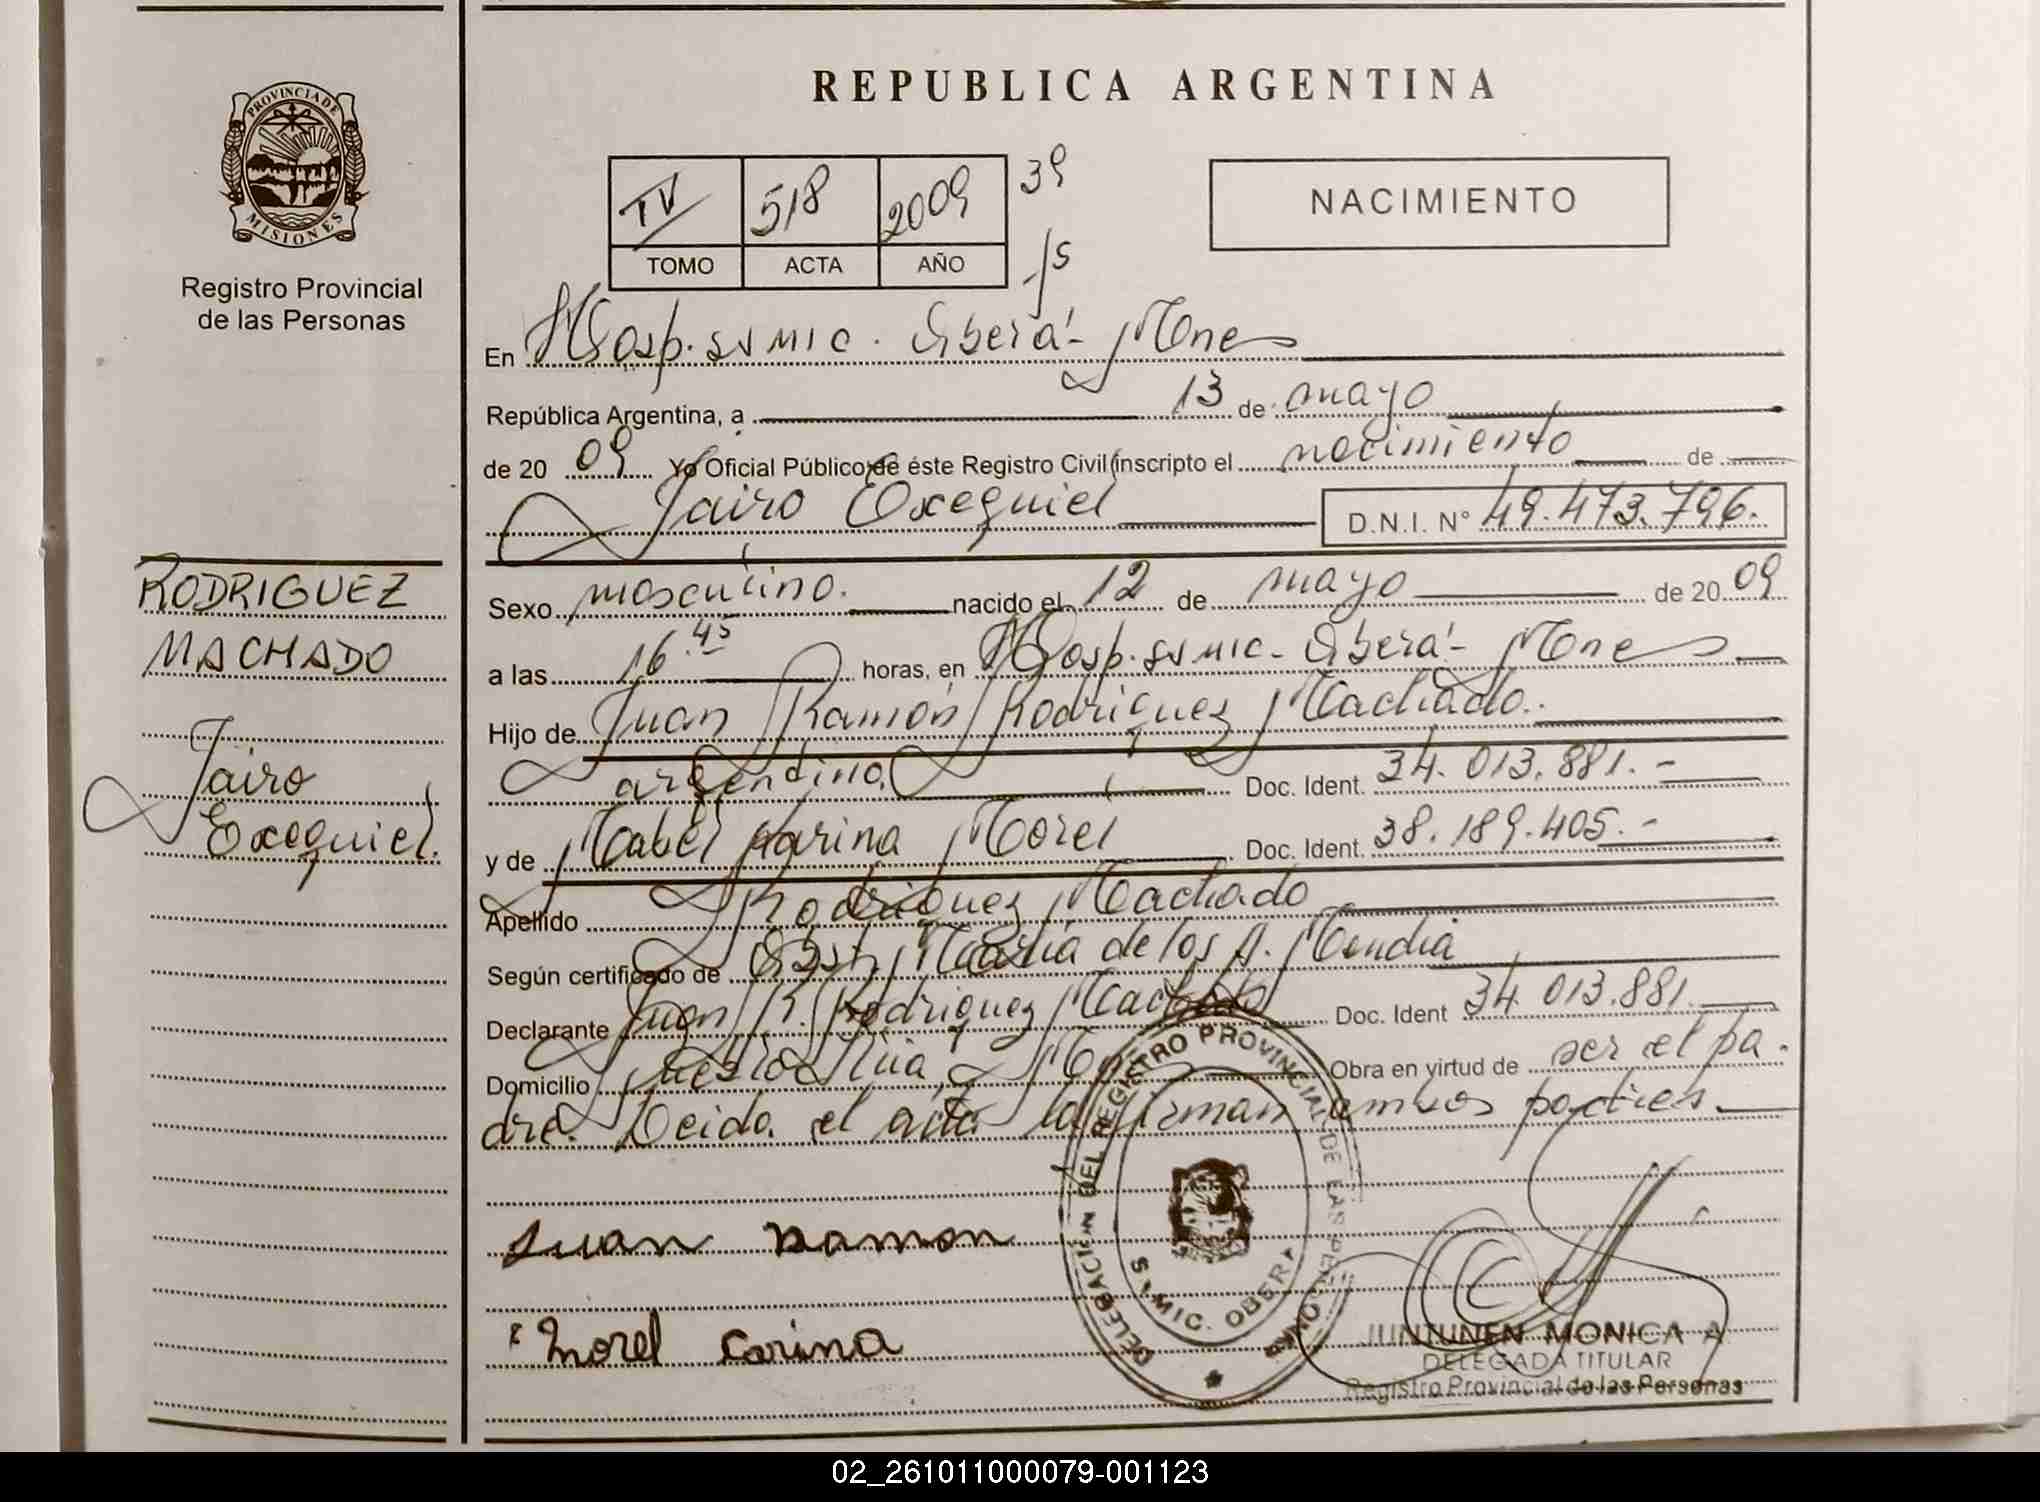 PROVINCIA DE
MISIONES
Registro Provincial
de las Personas
REPUBLICA ARGENTINA
IV 518 2009 39
TOMO ACTA AÑO 15
NACIMIENTO
En Hosp. SAMIC. Oberá - Mnes
República Argentina, a 13 de mayo
de 20 09 Yo Oficial Público de éste Registro Civil inscripto el nacimiento de
Jairo Exequiel D.N.I. N° 49.473.796.
RODRIGUEZ
MACHADO
Jairo
Exequiel.
Sexo masculino. nacido el 12 de mayo de 20 09
a las 16.45 horas, en Hosp. SAMIC - Oberá - Mnes
Hijo de Juan Ramón Rodriguez Machado.
argentino. Doc. Ident. 34.013.881.-
y de Mabel Karina Morel Doc. Ident. 38.189.405.-
Apellido Rodriguez Machado
Según certificado de Obst. María de los A. Mendia
Declarante Juan R. Rodriguez Machado Doc. Ident 34.013.881.
Domicilio Mnes Obra en virtud de ser el pa-
dre. Leida el acta la firman ambos padres.
Juan Ramon
Morel Carina
DELEGACIÓN DEL REGISTRO PROVINCIAL DE LAS PERSONAS
SAMIC. OBERA
JUNTUNEN MONICA A
DELEGADA TITULAR
Registro Provincial de las Personas
02_261011000079-001123